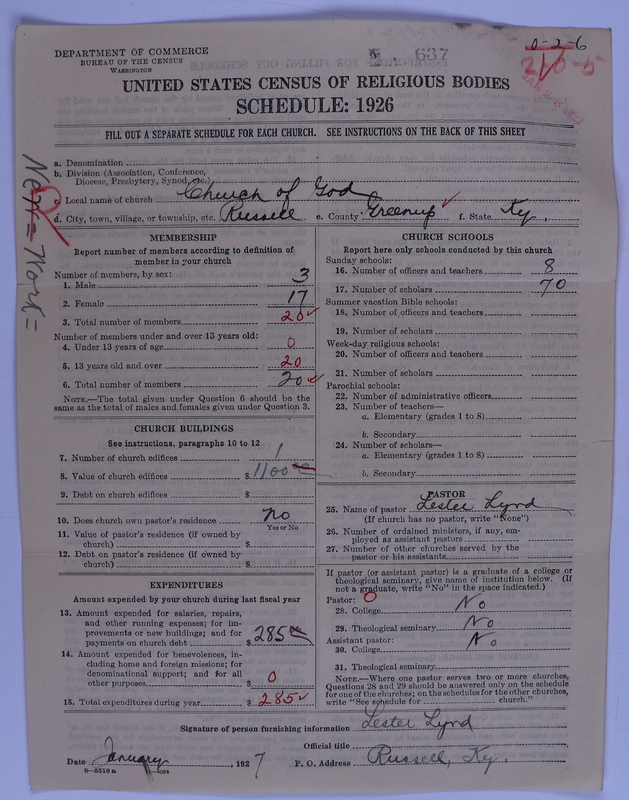 0-2-6
637
DEPARTMENT OF COMMERCE
BUREAU OF THE CENSUS
WASHINGTON
UNITED STATES CENSUS OF RELIGIOUS BODIES
SCHEDULE: 1926
FILL OUT A SEPARATE SCHEDULE FOR EACH CHURCH. SEE INSTRUCTIONS ON THE BACK OF THIS SHEET
a. Denomination
b. Division (Association, Conference,
Diocese, Presbytery, Synod, etc.)
c. Local name of church Church of God
d. City, town, village, or township, etc. Russell e. County Greenup f. State Ky.
New = Work =
MEMBERSHIP
Report number of members according to definition of
member in your church
Number of members, by sex:
1. Male 3
2. Female 17
3. Total number of members 20
Number of members under and over 13 years old:
4. Under 13 years of age 0
5. 13 years old and over 20
6. Total number of members 20
NOTE.—The total given under Question 6 should be
same as the total of males and females given under Question 3.
CHURCH BUILDINGS
See instructions, paragraphs 10 to 12
7. Number of church edifices 1
8. Value of church edifices $ 1100
9. Debt on church edifices $
10. Does church own pastor's residence no
Yes or No
11. Value of pastor's residence (if owned by
church) $
12. Debt on pastor's residence (if owned by
church) $
EXPENDITURES
Amount expended by your church during last fiscal year
13. Amount expended for salaries, repairs,
and other running expenses; for im-
provements or new buildings; and for
payments on church debt $ 285
14. Amount expended for benevolences, in-
cluding home and foreign missions; for
denominational support; and for all
other purposes $ 0
15. Total expenditures during year $ 285
CHURCH SCHOOLS
Report here only schools conducted by this church
Sunday schools:
16. Number of officers and teachers 8
17. Number of scholars 70
Summer vacation Bible schools:
18. Number of officers and teachers
19. Number of scholars
Week-day religious schools:
20. Number of officers and teachers
21. Number of scholars
Parochial schools:
22. Number of administrative officers
23. Number of teachers—
a. Elementary (grades 1 to 8)
b. Secondary
24. Number of scholars—
a. Elementary (grades 1 to 8)
b. Secondary
PASTOR
25. Name of pastor Lester Lynd
(If church has no pastor, write "None")
26. Number of ordained ministers, if any, em-
ployed as assistant pastors
27. Number of other churches served by the
pastor or his assistants
If pastor (or assistant pastor) is a graduate of a college or
theological seminary, give name of institution below. (If
not a graduate, write "No" in the space indicated.)
Pastor: 0
28. College No
29. Theological seminary No
Assistant pastor:
30. College No
31. Theological seminary
NOTE.—Where one pastor serves two or more churches,
Questions 28 and 29 should be answered only on the schedule
for one of the churches; on the schedules for the other churches,
write "See schedule for church."
Signature of person furnishing information Lester Lynd
Official title
Date January, 1927 P. O. Address Russell, Ky.
8—5518a